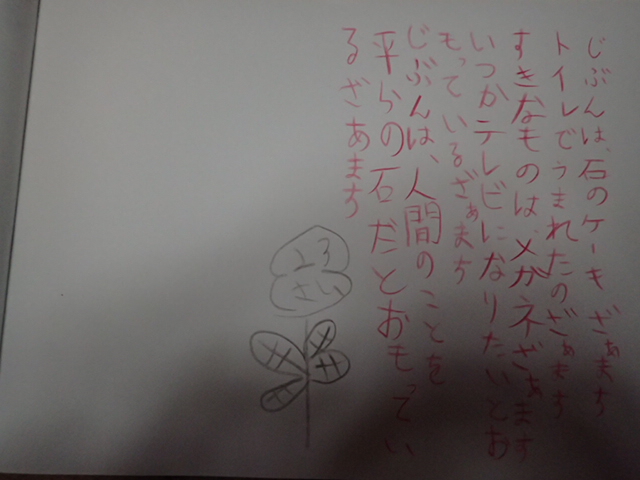 じぶんは、石のケーキざぁます
トイレでうまれたのざぁます
すきなものは、メガネざぁます
いつかテレビになりたいとお
もっているざぁます
じぶんは、人間のことを
平らの石だとおもってい
るざあます
さい